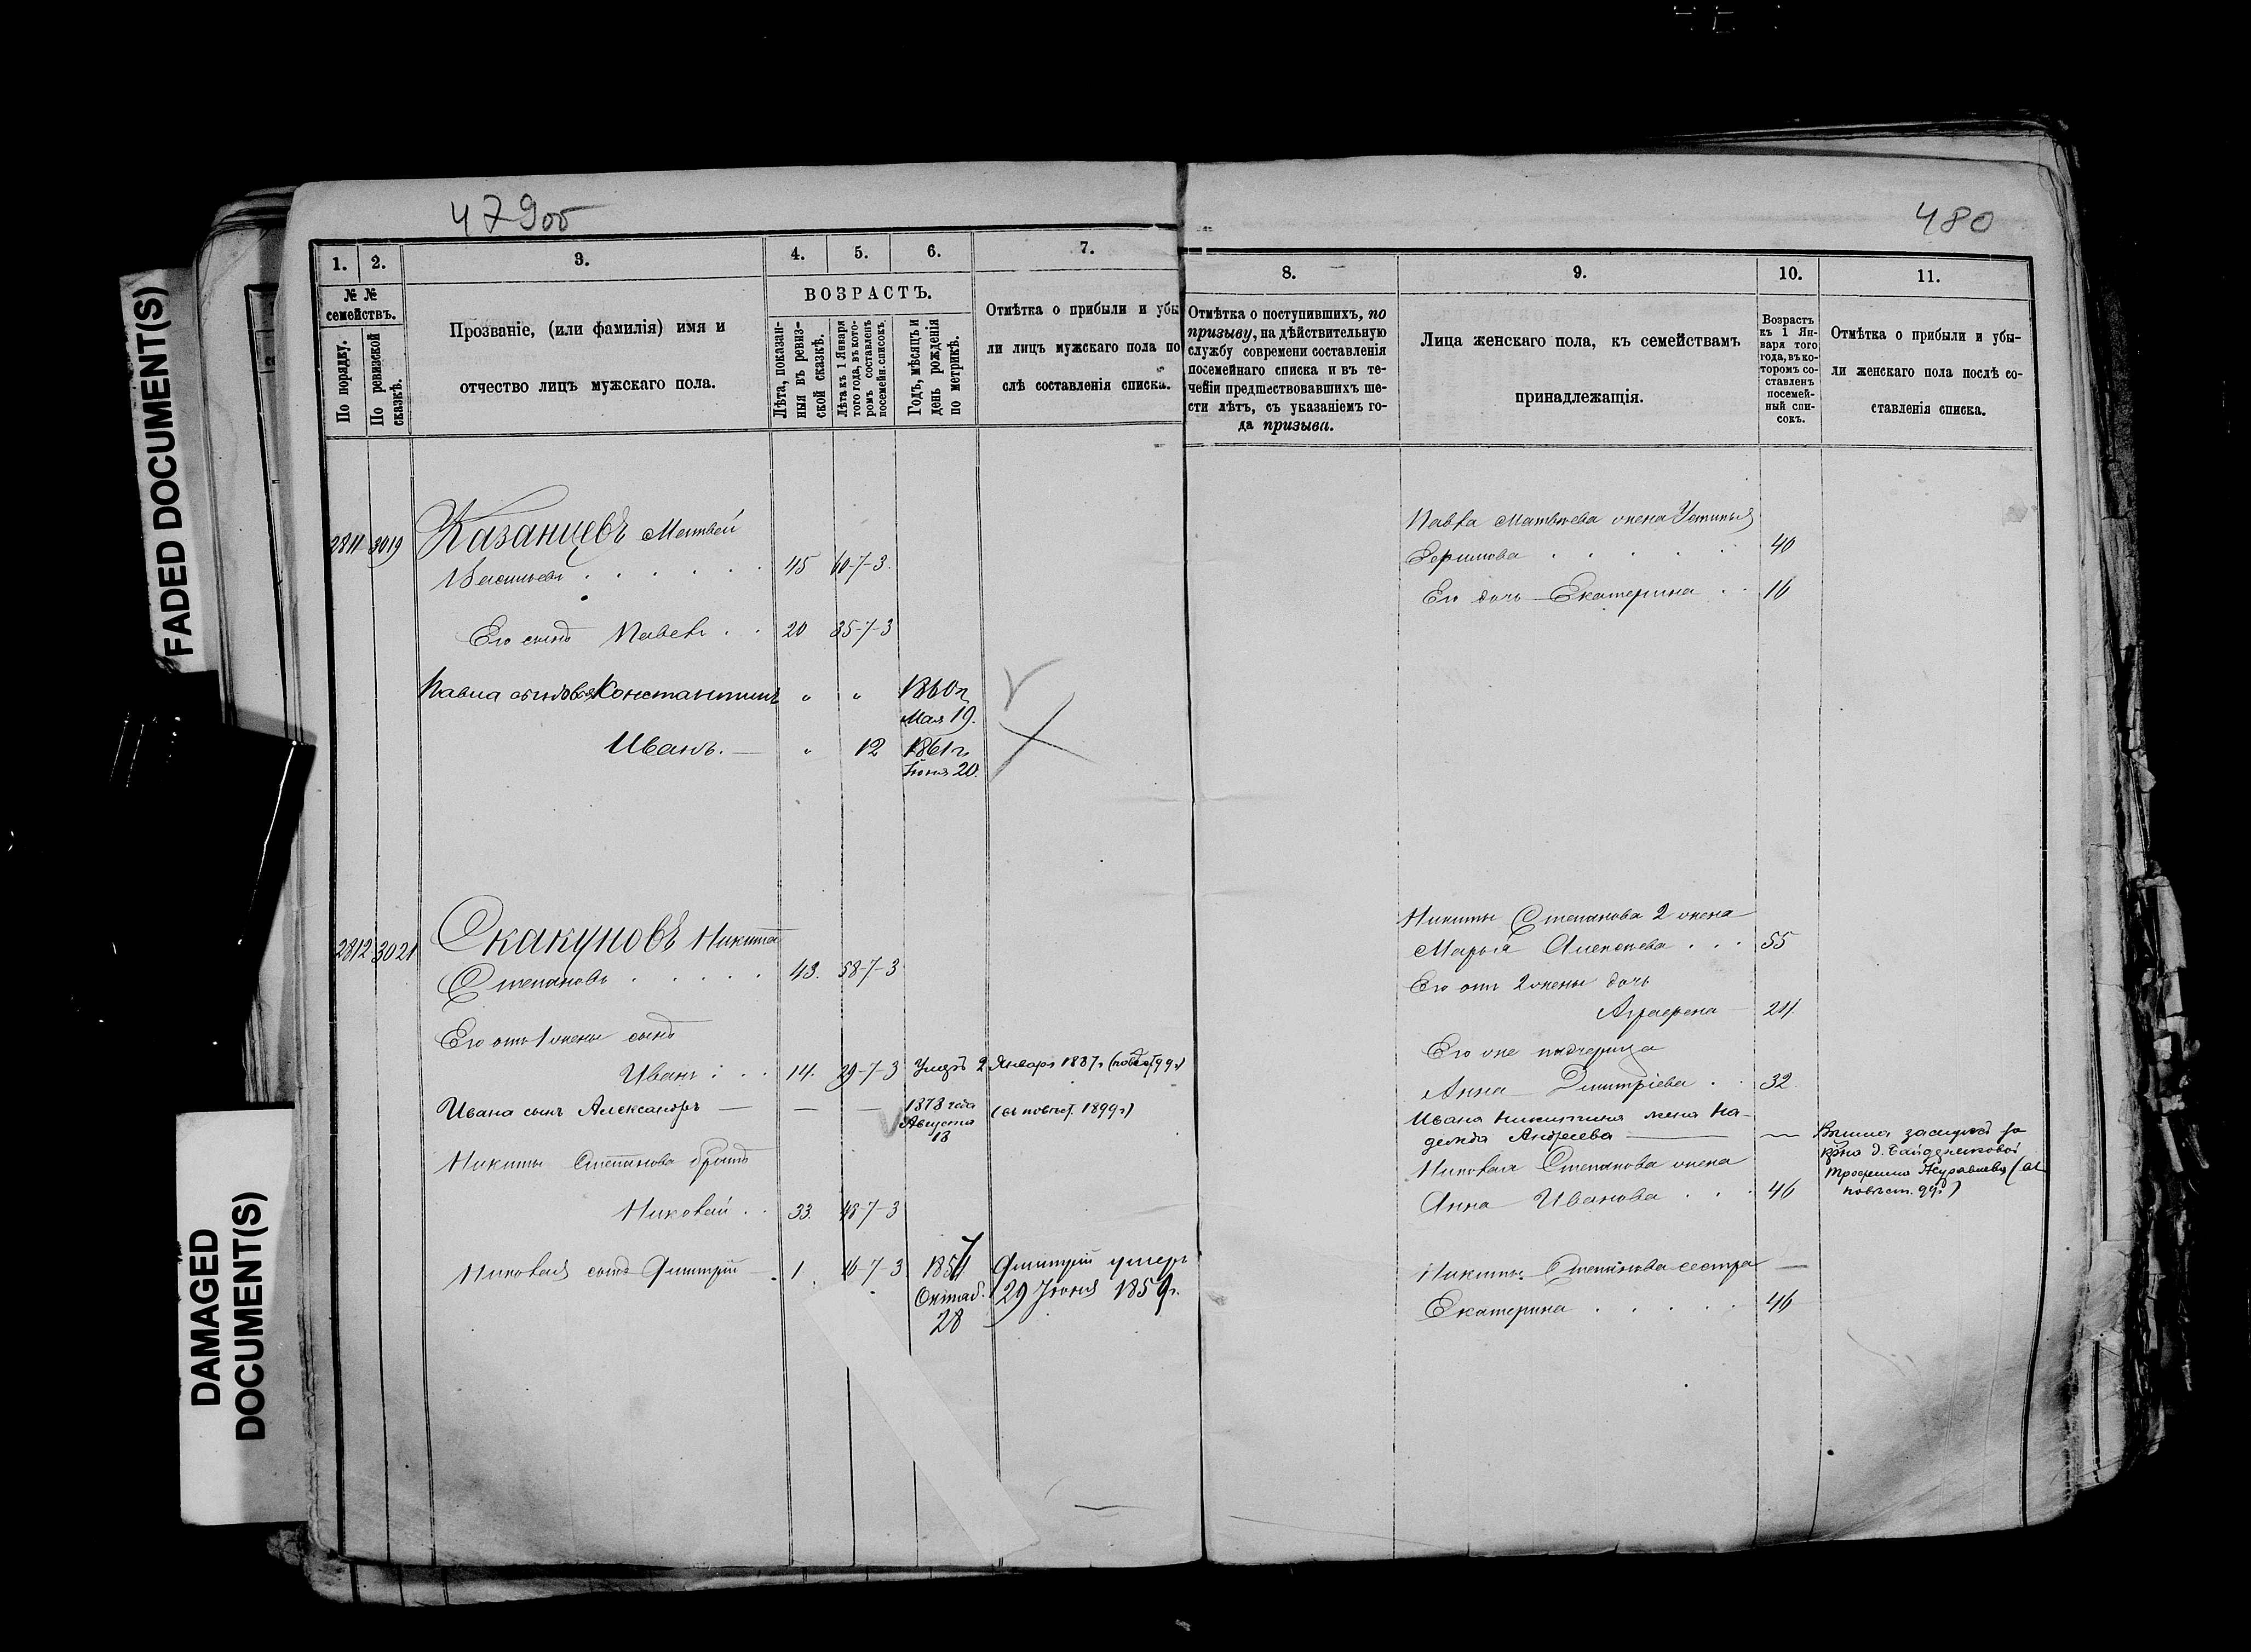 FADED DOCUMENT(S)
DAMAGED
DOCUMENT(S)
479об
1.
2.
3.
4.
5.
6.
7.
№ №
семействъ.
По порядку.
По ревизской
сказкѣ.
Прозваніе, (или фамилія) имя и
отчество лицъ мужскаго пола.
ВОЗРАСТЪ.
Лѣта, показан-
ныя въ ревиз-
ской сказкѣ.
Лѣта къ 1 Января
того года, въ кото-
ромъ составленъ
посемейн. списокъ.
Годъ, мѣсяцъ и
день рожденія
по метрикѣ.
Отмѣтка о прибыли и убы
ли лицъ мужскаго пола по
слѣ составленія списка.
2811 3019 Казанцевъ Матвей
Васильевъ 45 60-7-3.
Его сынъ Павелъ 20 35-7-3
Павла сыновья Константинъ " " 1860 г.
Мая 19.
Иванъ. — " 12 1861 г.
Іюня 20.
2812 3021 Скакуновъ Никита
Степановъ 43. 58-7-3
Его отъ 1 жены сынъ
Иванъ 14. 29-7-3 Умеръ 2 Января 1887 г.
Ивана сынъ Александръ — — — 1878 года (въ повѣст. 1899 г.)
Августа
18
Никиты Степанова братъ
Николай 33. 48-7-3
Николая сынъ Дмитрій 1 16-7-3 1857 Дмитрій умеръ
Октяб. 29 Іюня 1859 г.
28
480
8.
9.
10.
11.
Отмѣтка о поступившихъ, по
призыву, на дѣйствительную
службу современи составленія
посемейнаго списка и въ те-
ченіи предшествовавшихъ ше-
сти лѣтъ, съ указаніемъ го-
да призыва.
Лица женскаго пола, къ семействамъ
принадлежащія.
Возрастъ
къ 1 Ян-
варя того
года, въ ко-
торомъ со-
ставленъ
посемей-
ный спи-
сокъ.
Отмѣтка о прибыли и убы-
ли женскаго пола послѣ со-
ставленія списка.
Павла Матвѣева жена Устинья
40
Его дочь Екатерина 16
Никиты Степанова 2 жена
Марья Алексѣева 55
Его отъ 2 жены дочь
Аграфена 24.
Его же падчерица
Анна Дмитріева 32.
Ивана Никитина жена На-
дежда Андреева — — Вышла замужъ за
Николая Степанова жена
Анна Иванова 46
Никиты Степанова сестра —
Екатерина 46